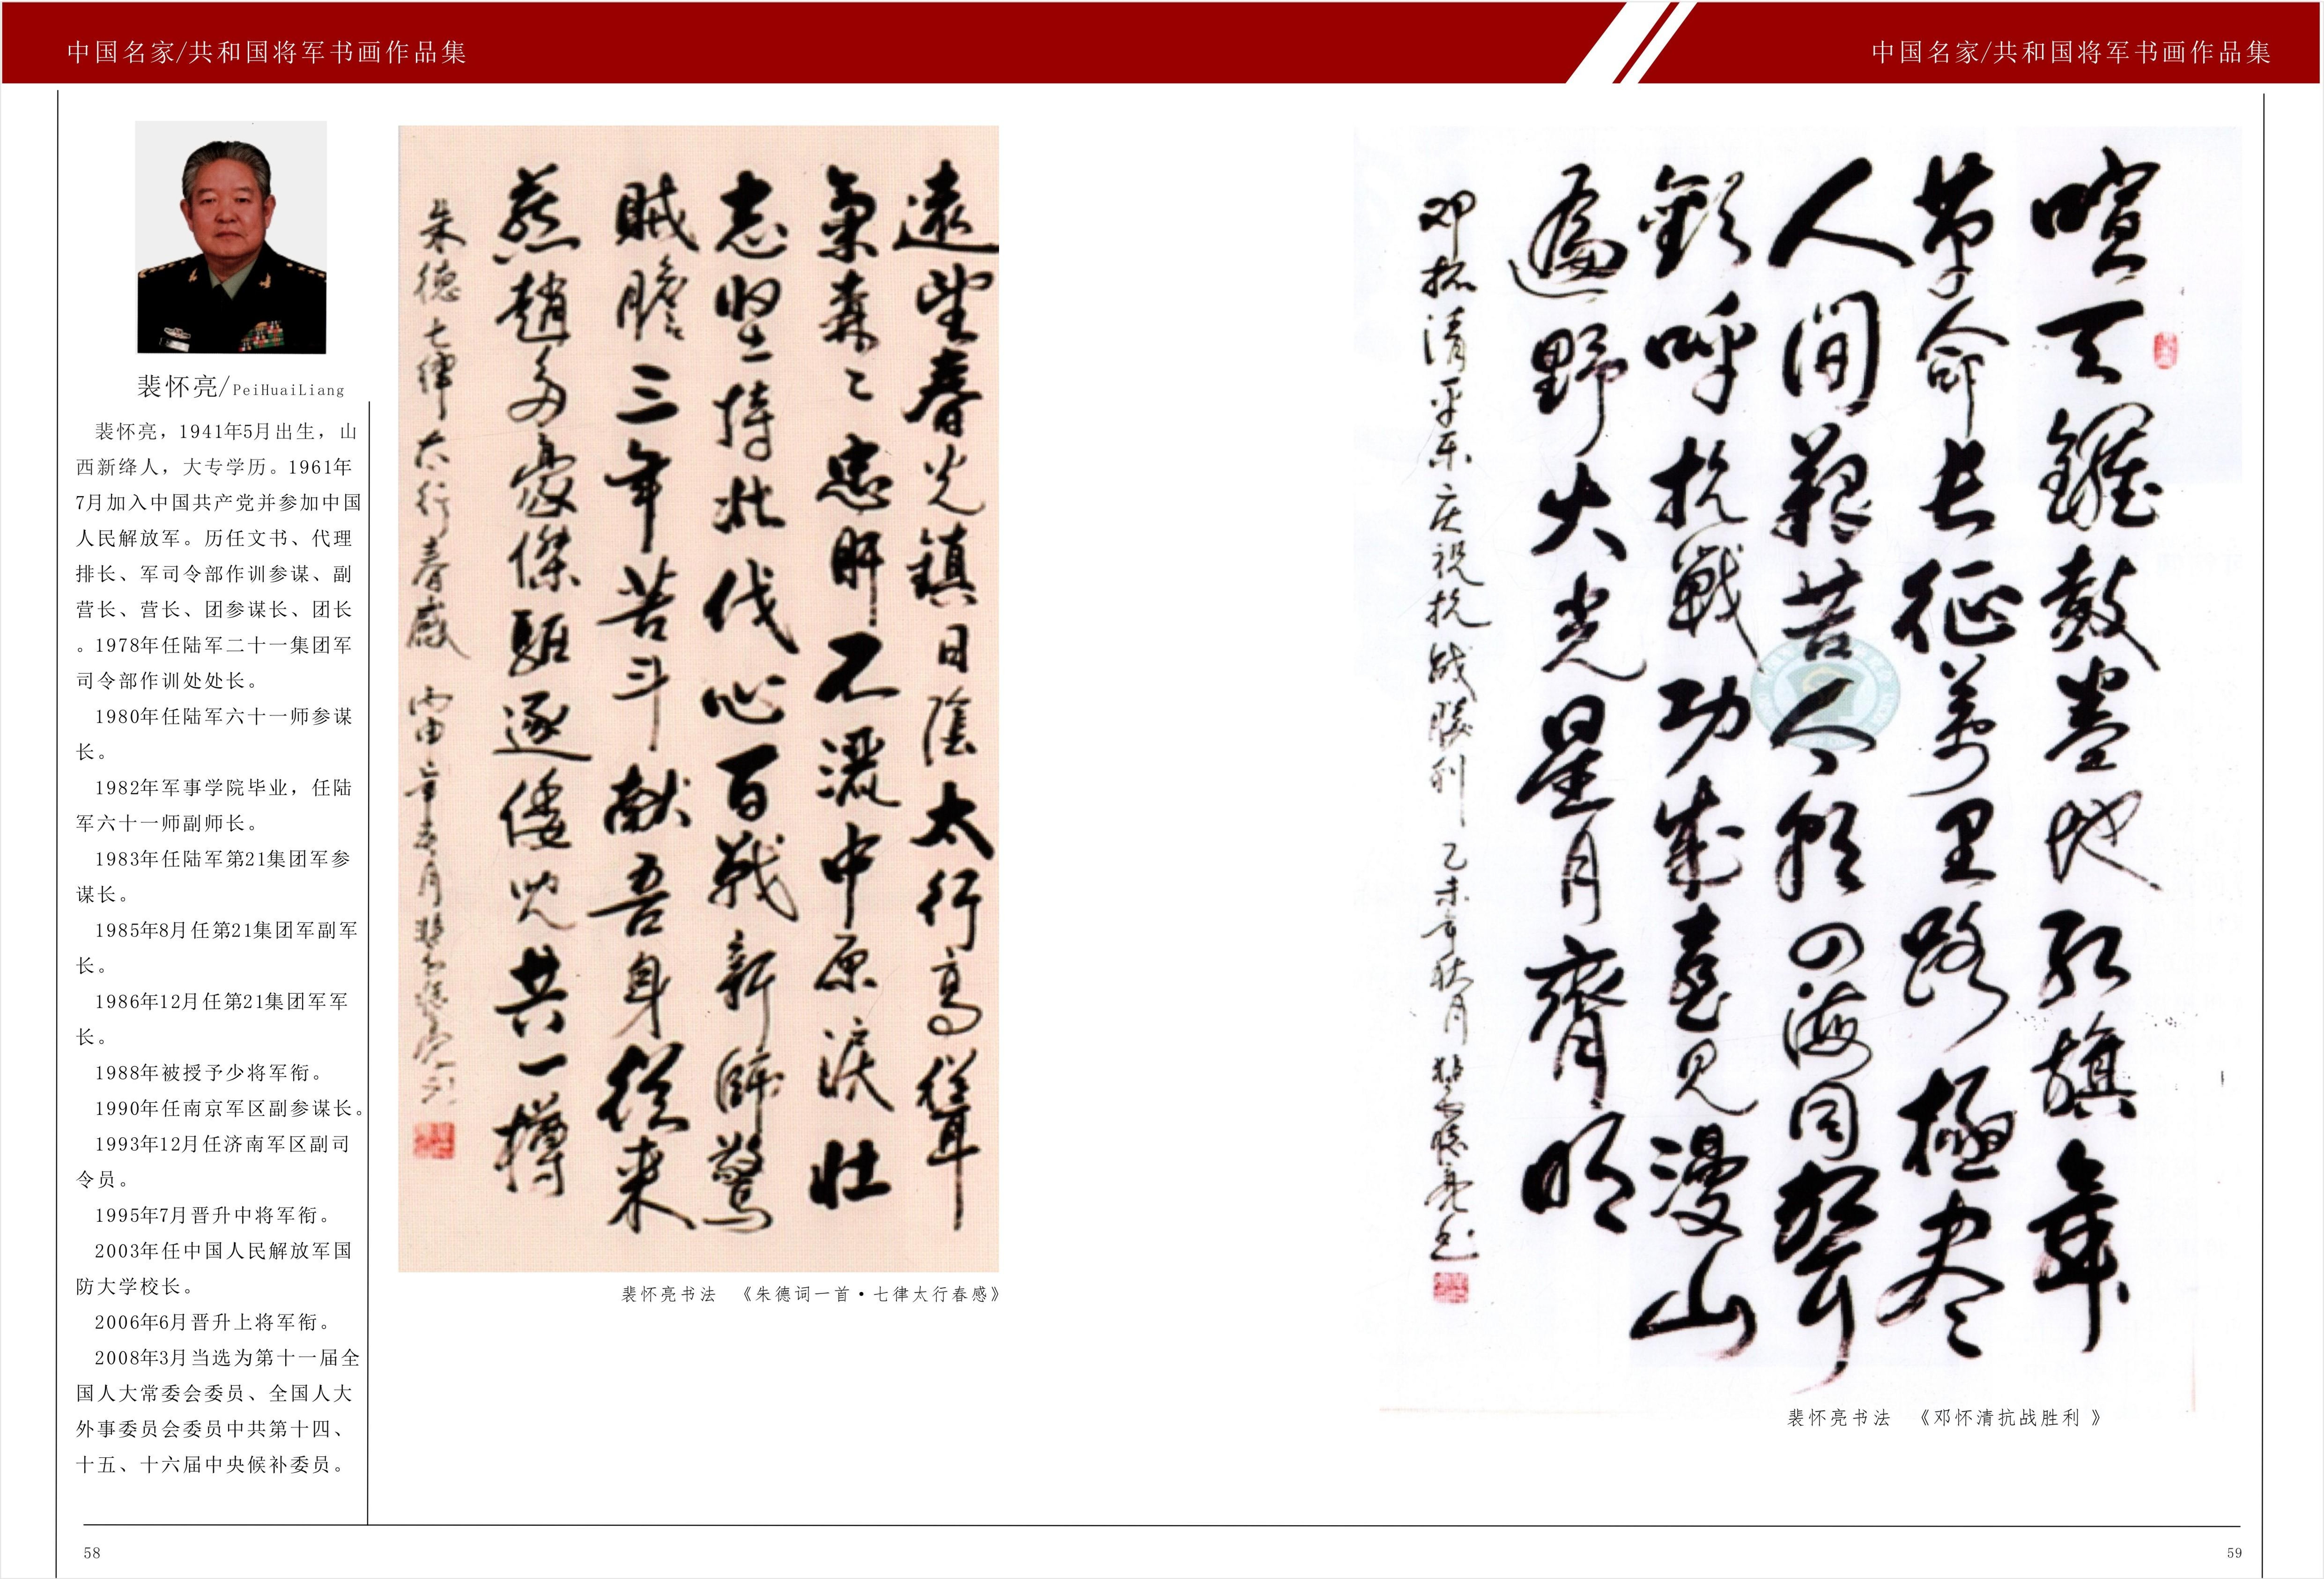 中国名家/共和国将军书画作品集
中国名家/共和国将军书画作品集
裴怀亮/PeiHuaiLiang
裴怀亮，1941年5月出生，山
西新绛人，大专学历。1961年
7月加入中国共产党并参加中国
人民解放军。历任文书、代理
排长、军司令部作训参谋、副
营长、营长、团参谋长、团长
。1978年任陆军二十一集团军
司令部作训处处长。
1980年任陆军六十一师参谋
长。
1982年军事学院毕业，任陆
军六十一师副师长。
1983年任陆军第21集团军参
谋长。
1985年8月任第21集团军副军
长。
1986年12月任第21集团军军
长。
1988年被授予少将军衔。
1990年任南京军区副参谋长。
1993年12月任济南军区副司
令员。
1995年7月晋升中将军衔。
2003年任中国人民解放军国
防大学校长。
2006年6月晋升上将军衔。
2008年3月当选为第十一届全
国人大常委会委员、全国人大
外事委员会委员中共第十四、
十五、十六届中央候补委员。
遠望春光鎮日陰太行高聳
氣森々忠肝不灑中原淚壮
志堅持北伐心百戰新師驚
賊膽三年苦斗献吾身從来
燕趙多豪傑驅逐倭児共一樽
朱德七律太行春感 丙申年春月裴怀亮
裴怀亮书法 《朱德词一首·七律太行春感》
喧天鑼鼓卷地紅旗舞
革命长征萬里路極尽
人間艱苦今朝四海同聲
歡呼抗戰功成臺見漫山
遍野火光星月齊明
邓怀清平乐庆祝抗战勝利 乙未年秋月 裴怀亮书
裴怀亮书法 《邓怀清抗战胜利 》
58
59